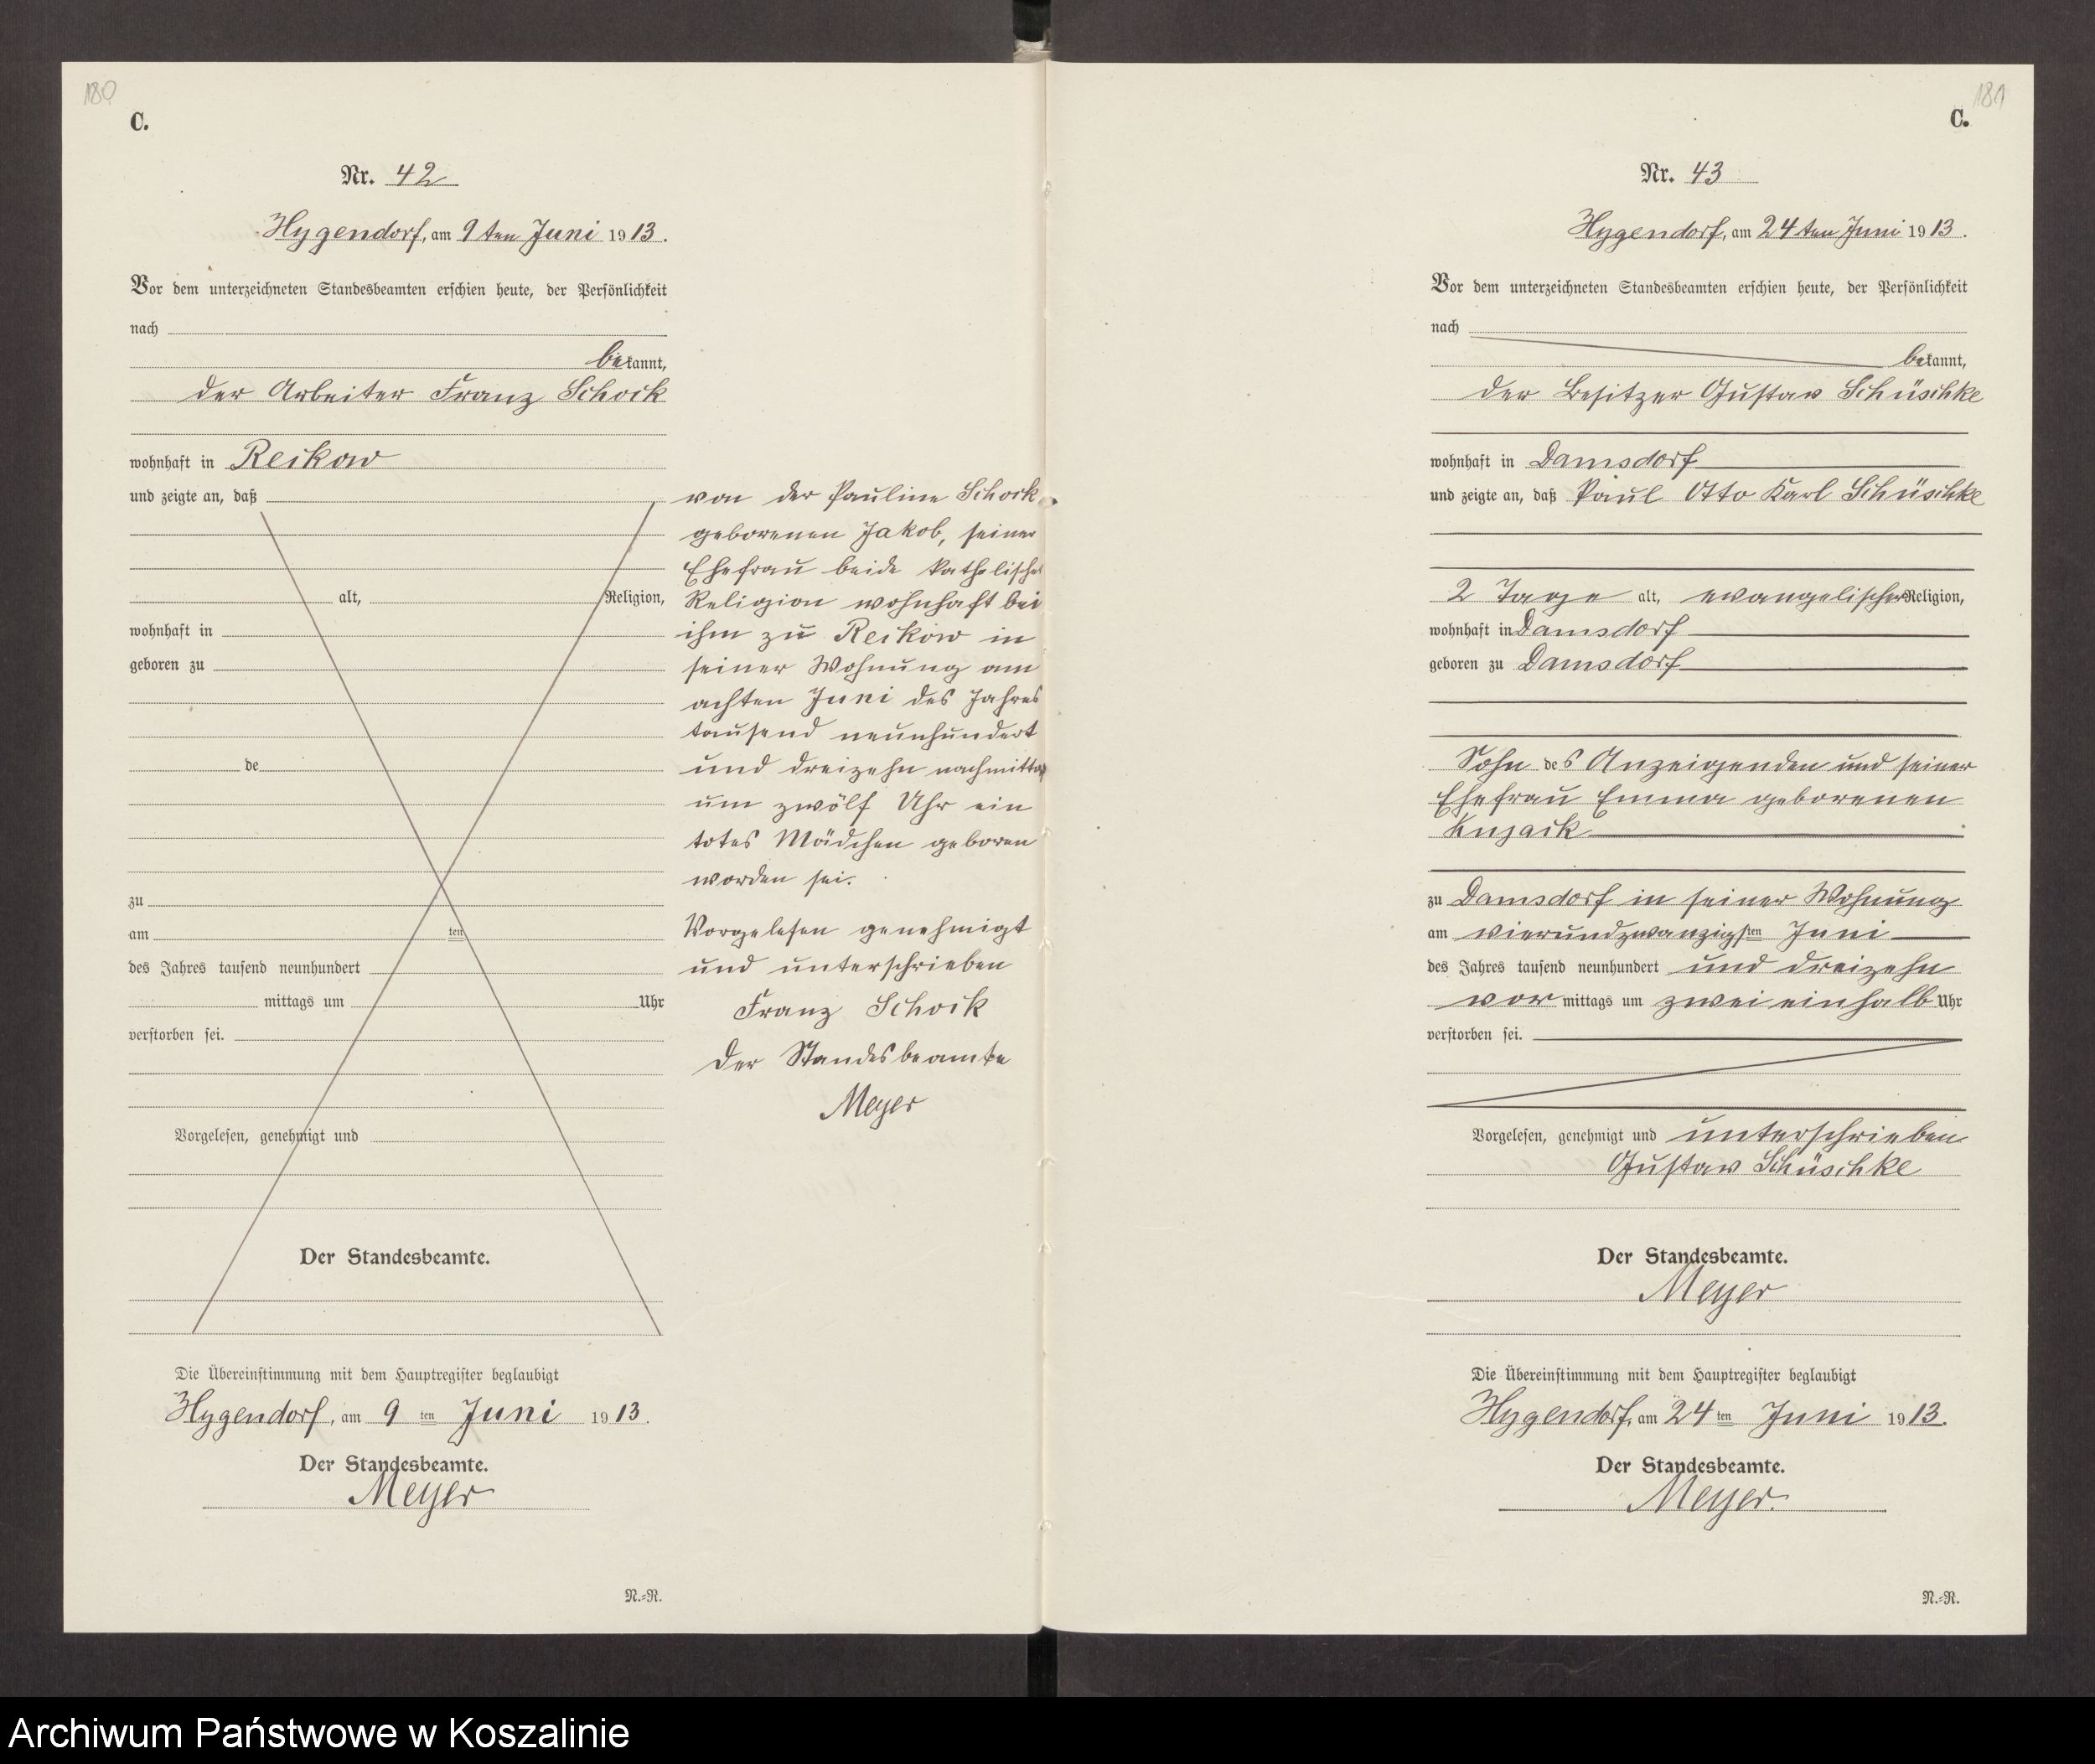 180
C.
Nr. 42
Hygendorf, am 9ten Juni 1913.
Vor dem unterzeichneten Standesbeamten erschien heute, der Persönlichkeit
nach
bekannt,
der Arbeiter Franz Schock
wohnhaft in Reikow
und zeigte an, daß
alt, Religion,
wohnhaft in
geboren zu
de
zu
am ten
des Jahres tausend neunhundert
mittags um Uhr
verstorben sei.
Vorgelesen, genehmigt und
Der Standesbeamte.
von der Pauline Schock
geborenen Jakob, seiner
Ehefrau beide katholischer
Religion wohnhaft bei
ihm zu Reikow in
seiner Wohnung am
achten Juni des Jahres
tausend neunhundert
und dreizehn nachmittag
um zwölf Uhr ein
totes Mädchen geboren
worden sei.
Vorgelesen genehmigt
und unterschrieben
Franz Schock
Der Standesbeamte
Meyer
Die Übereinstimmung mit dem Hauptregister beglaubigt
Hygendorf, am 9 ten Juni 1913.
Der Standesbeamte.
Meyer
N.=R.
181
C.
Nr. 43
Hygendorf, am 24ten Juni 1913.
Vor dem unterzeichneten Standesbeamten erschien heute, der Persönlichkeit
nach
bekannt,
der Besitzer Gustav Schüschke
wohnhaft in Damsdorf
und zeigte an, daß Paul Otto Karl Schüschke
2 Tage alt, evangelischer Religion,
wohnhaft in Damsdorf
geboren zu Damsdorf
Sohn des Anzeigenden und seiner
Ehefrau Emma geborenen
zu Damsdorf in seiner Wohnung
am vierundzwanzigsten Juni
des Jahres tausend neunhundert und dreizehn
vor mittags um zwei einhalb Uhr
verstorben sei.
Vorgelesen, genehmigt und unterschrieben
Gustav Schüschke
Der Standesbeamte.
Meyer
Die Übereinstimmung mit dem Hauptregister beglaubigt
Hygendorf, am 24 ten Juni 1913.
Der Standesbeamte.
Meyer.
N.=R.
Archiwum Państwowe w Koszalinie